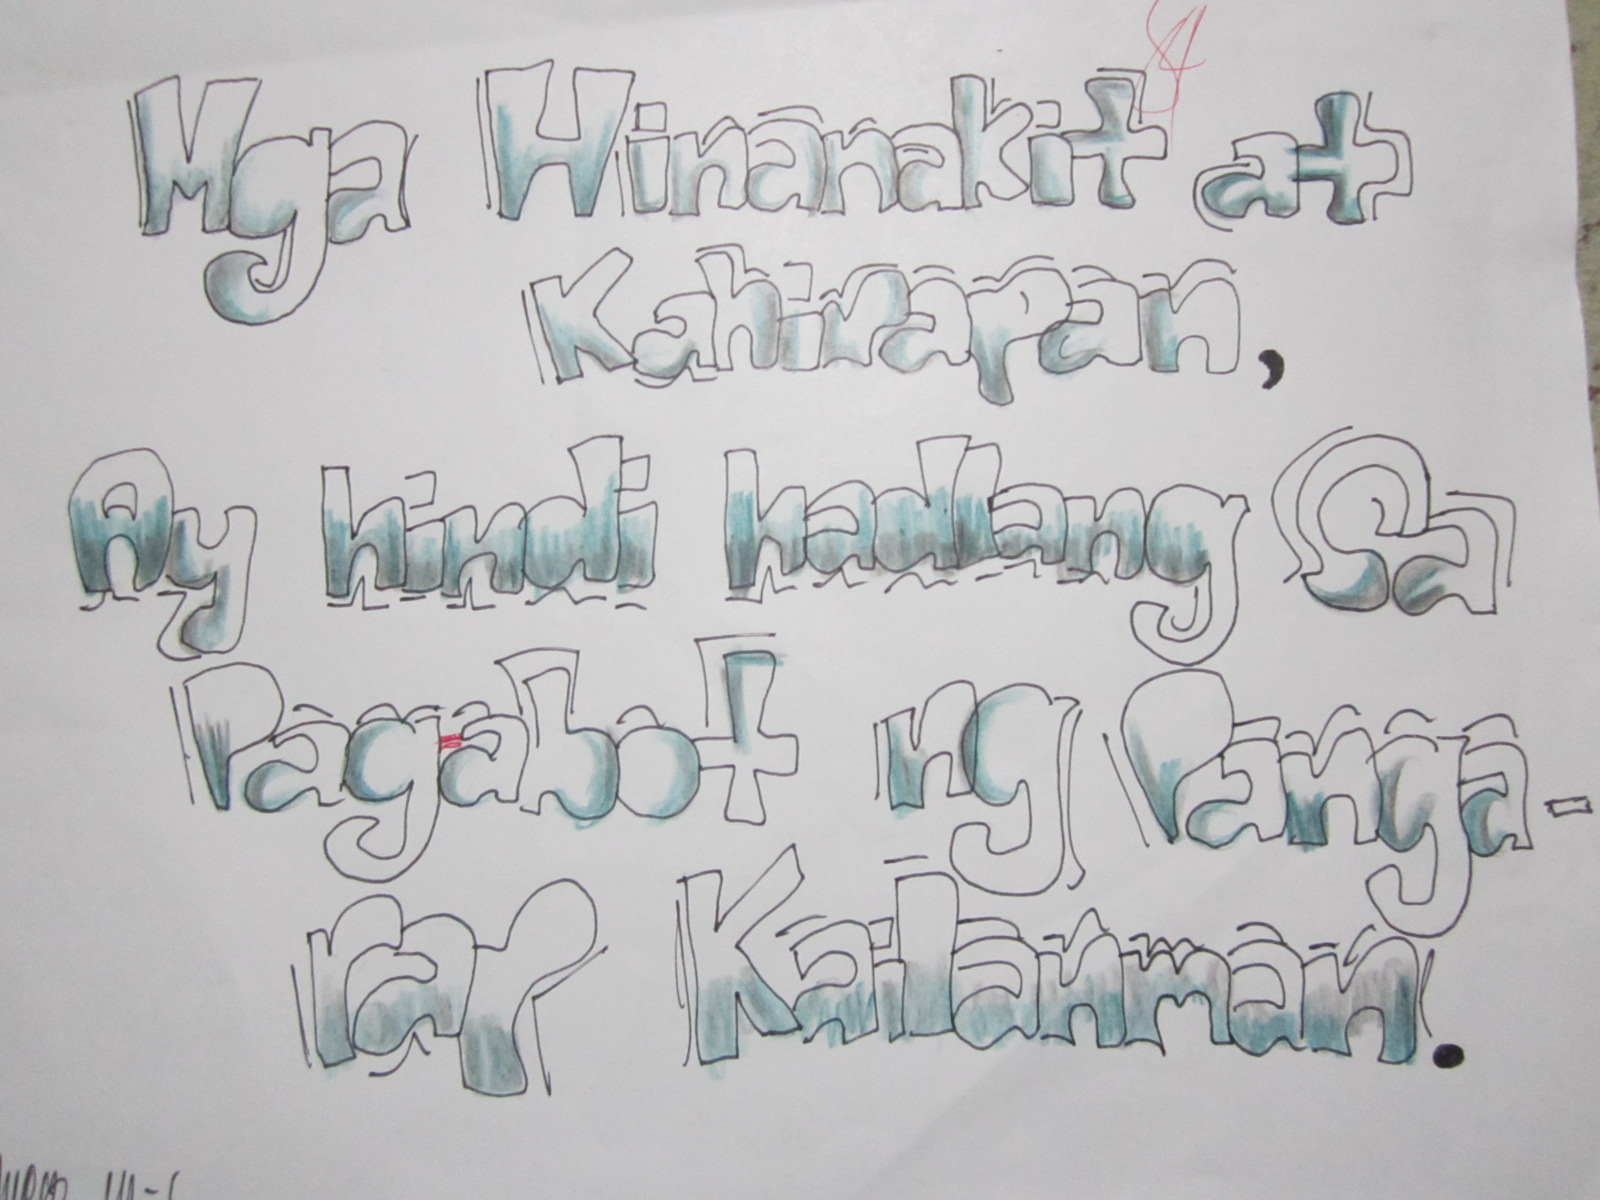 Mga Hinanakit at
Kahirapan,
Ay hindi hadlang Sa
Pagabot ng Panga-
rap Kailanman.
III-1